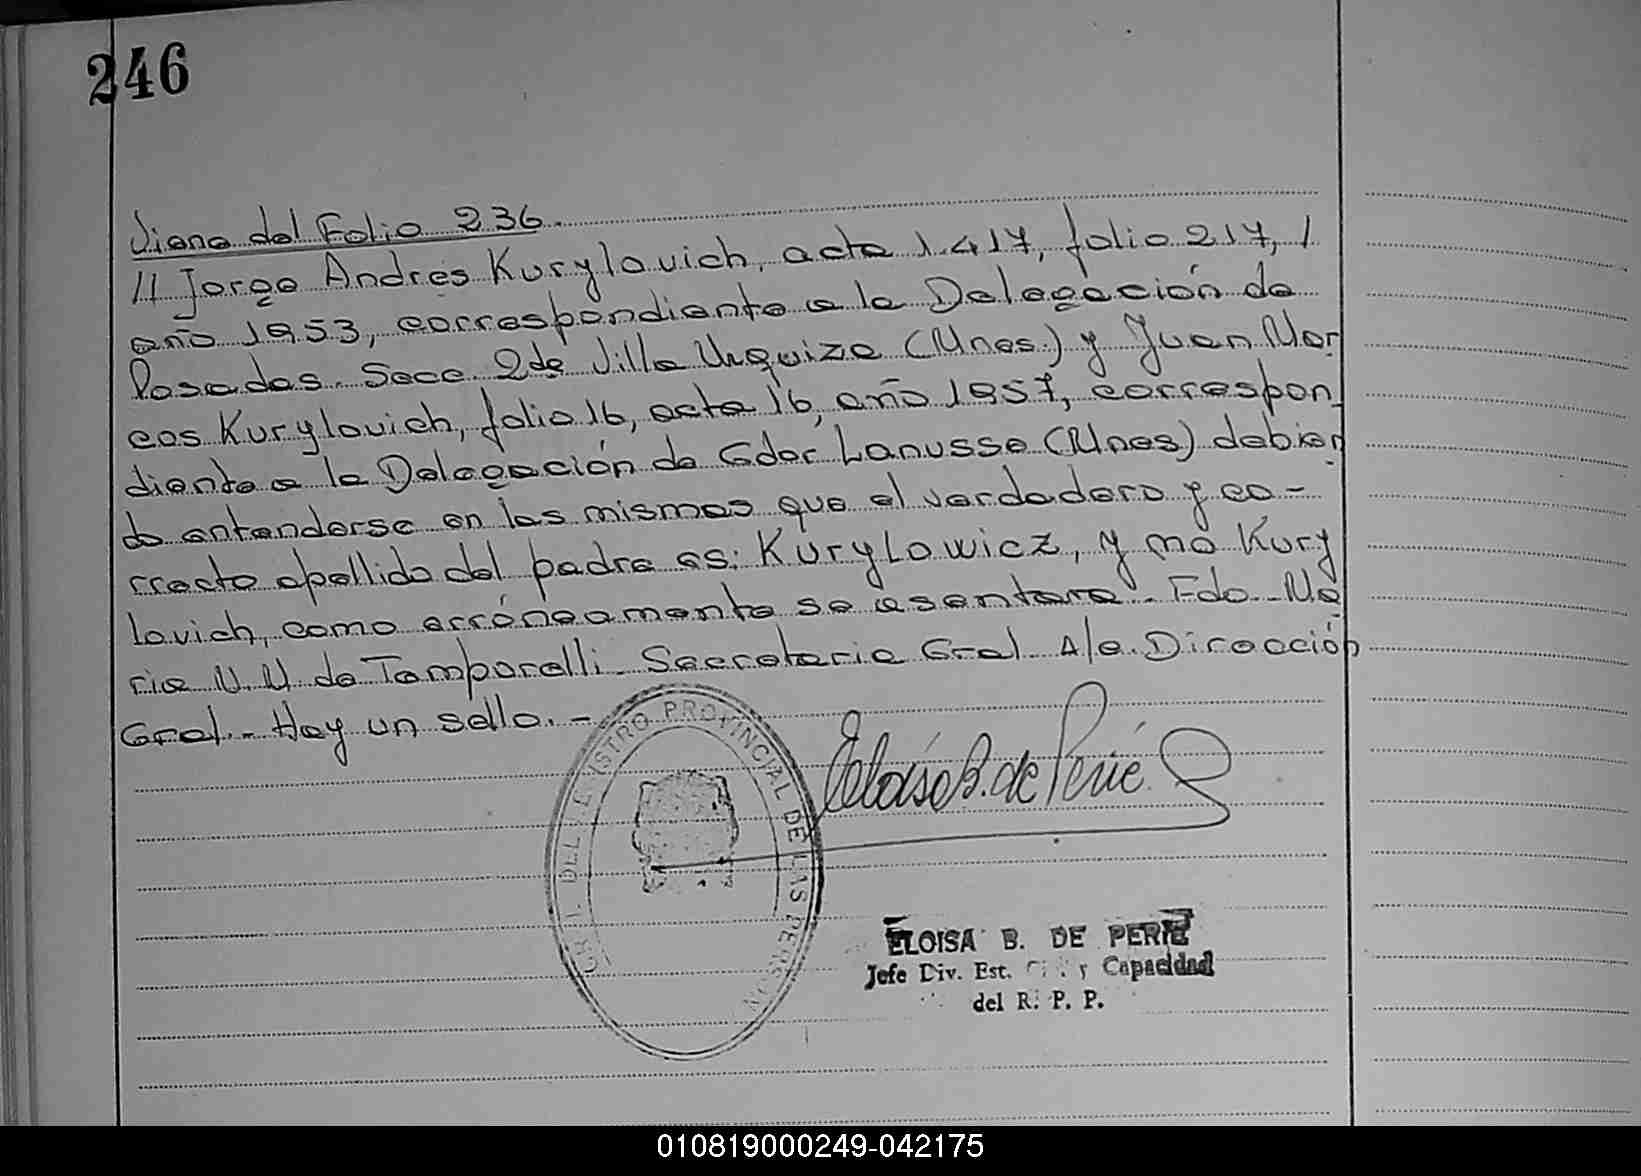 246
Viene del Folio 236.
// Jorge Andrés Kurylovich, acta 1.417, folio 217, /
año 1953, correspondiente a la Delegación de
Posadas. Secc. 2da Villa Urquiza (Mnes.) y Juan Mar
cos Kurylovich, folio 16, acta 16, año 1957, correspon
diente a la Delegación de Gdor Lanusse (Mnes) debien
do entenderse en las mismas que el verdadero y co-
rrecto apellido del padre es: Kurylowicz, y no Kury
lovich, como erróneamente se asentara. Fdo. Ma
ria M. M. de Tamparelli. Secretaria Gral A/c. Dirección
Gral. - Hay un sello. -
GRAL. DEL REGISTRO PROVINCIAL DE LAS PERSON
Eloísa B. de Perié
ELOISA B. DE PERIE
Jefe Div. Est. y Capacidad
del R. P. P.
010819000249-042175